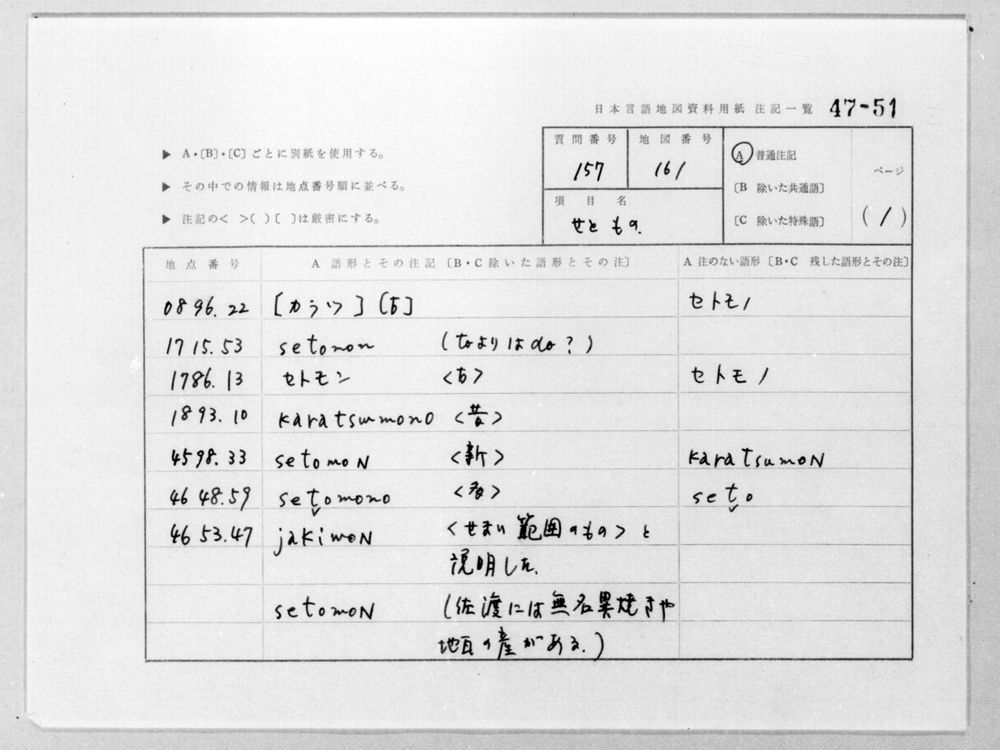 日本言語地図資料用紙 注記一覧 47-51
▶ A・〔B〕・〔C〕ごとに別紙を使用する。
▶ その中での情報は地点番号順に並べる。
▶ 注記の< >( )〔 〕は厳密にする。
質問番号 157
地図番号 161
項目名 せともの.
A 普通注記
〔B 除いた共通語〕
〔C 除いた特殊語〕
ページ (1)
地点番号 A 語形とその注記〔B・C除いた語形とその注〕 A 注のない語形〔B・C 残した語形とその注〕
0896.22 [カラツ] [古] セトモノ
1715.53 setomon (toよりはdo?)
1786.13 セトモン <古> セトモノ
1893.10 karatsumono <昔>
4598.33 setomoN <新> karatsumoN
4648.59 setomono <多> seto
4653.47 jakimoN <せまい範囲のもの>と
説明した.
setomoN (佐渡には無名異焼きや
地瓦の産がある.)